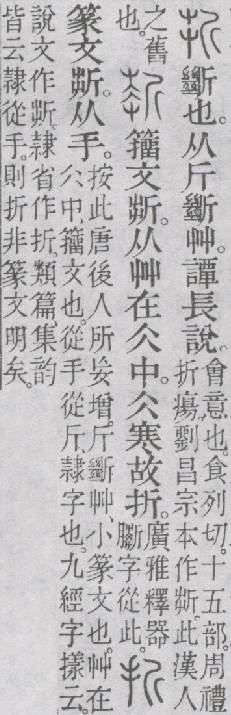 斷也。从斤斷艸。譚長說。
會意也。食列切。十五部。周禮
折瘍。劉昌宗本作㪿。此漢人
之舊
也。
籒文㪿。从艸在仌中。仌寒故折。
廣雅釋器
字從此。
篆文㪿。从手。
按此唐後人所妄增。斤斷艸、小篆文也。艸在
仌中、籒文也。從手從斤、隷字也。九經字樣云。
說文作㪿。隷省作折。類篇集韵
皆云隷從手。則折非篆文明矣。